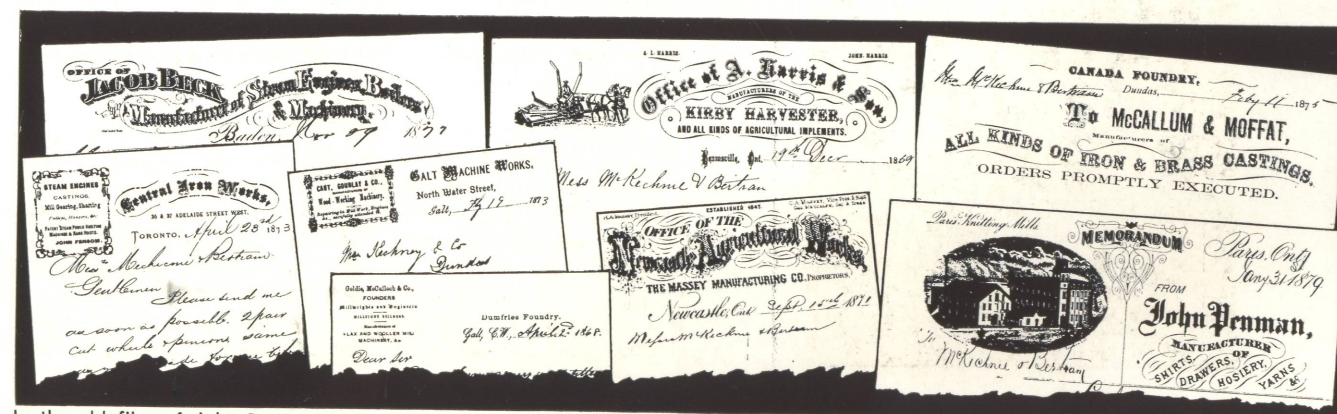 OFFICE OF
JACOB BECK
Manufacturer of Steam Engines, Boilers
& Machinery.
Baden, Nov 29 1877
A. L. HARRIS. JOHN HARRIS
Office of A. Harris & Son,
MANUFACTURERS OF THE
KIRBY HARVESTER,
AND ALL KINDS OF AGRICULTURAL IMPLEMENTS.
Beamsville, Ont. 19th Decr 1869
Mess McKechnie & Bertran
CANADA FOUNDRY,
Dundas, Feby 11 1875
Mess McKechnie & Bertram
To McCALLUM & MOFFAT,
Manufacturers of
ALL KINDS OF IRON & BRASS CASTINGS.
ORDERS PROMPTLY EXECUTED.
STEAM ENGINES
CASTINGS
Mill Gearing, Shafting
Pulleys, Hangers, &c.
JOHN PERKINS.
Central Iron Works,
30 & 32 ADELAIDE STREET WEST.
TORONTO, April 23rd 1873
Mess Mechienie & Bertram
Gentlemen
Please send me
as soon as possible 2 pair
cut wheels & pinions same
CANT, GOURLAY & CO.,
Wood-Working Machinery.
GALT MACHINE WORKS,
North Water Street,
Galt, 19 1873
& Co
Dundas
Goldie, McCulloch & Co.,
FOUNDERS
Millwrights and Engineers
MILLSTONE BUILDERS,
Manufacturers of
FLAX AND WOOLLEN MILL
MACHINERY, &c
Dumfries Foundry,
Galt, C.W., April 2d 1868.
Dear Sir
ESTABLISHED 1847.
OFFICE OF THE
Newcastle Agricultural Works,
THE MASSEY MANUFACTURING CO. PROPRIETORS.
Newcastle, Ont Sept. 15th 1871
Messrs McKechnie & Bertram
Paris Knitting Mills
MEMORANDUM
Paris, Ont,
Jany 31 1879
FROM
John Penman,
MANUFACTURER
OF
SHIRTS, DRAWERS, HOSIERY, YARNS &c
To
McKechnie & Bertram